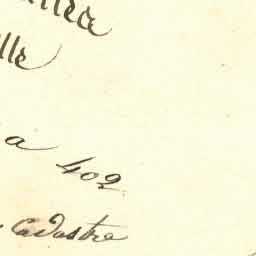 lle
a 402
Cadastre